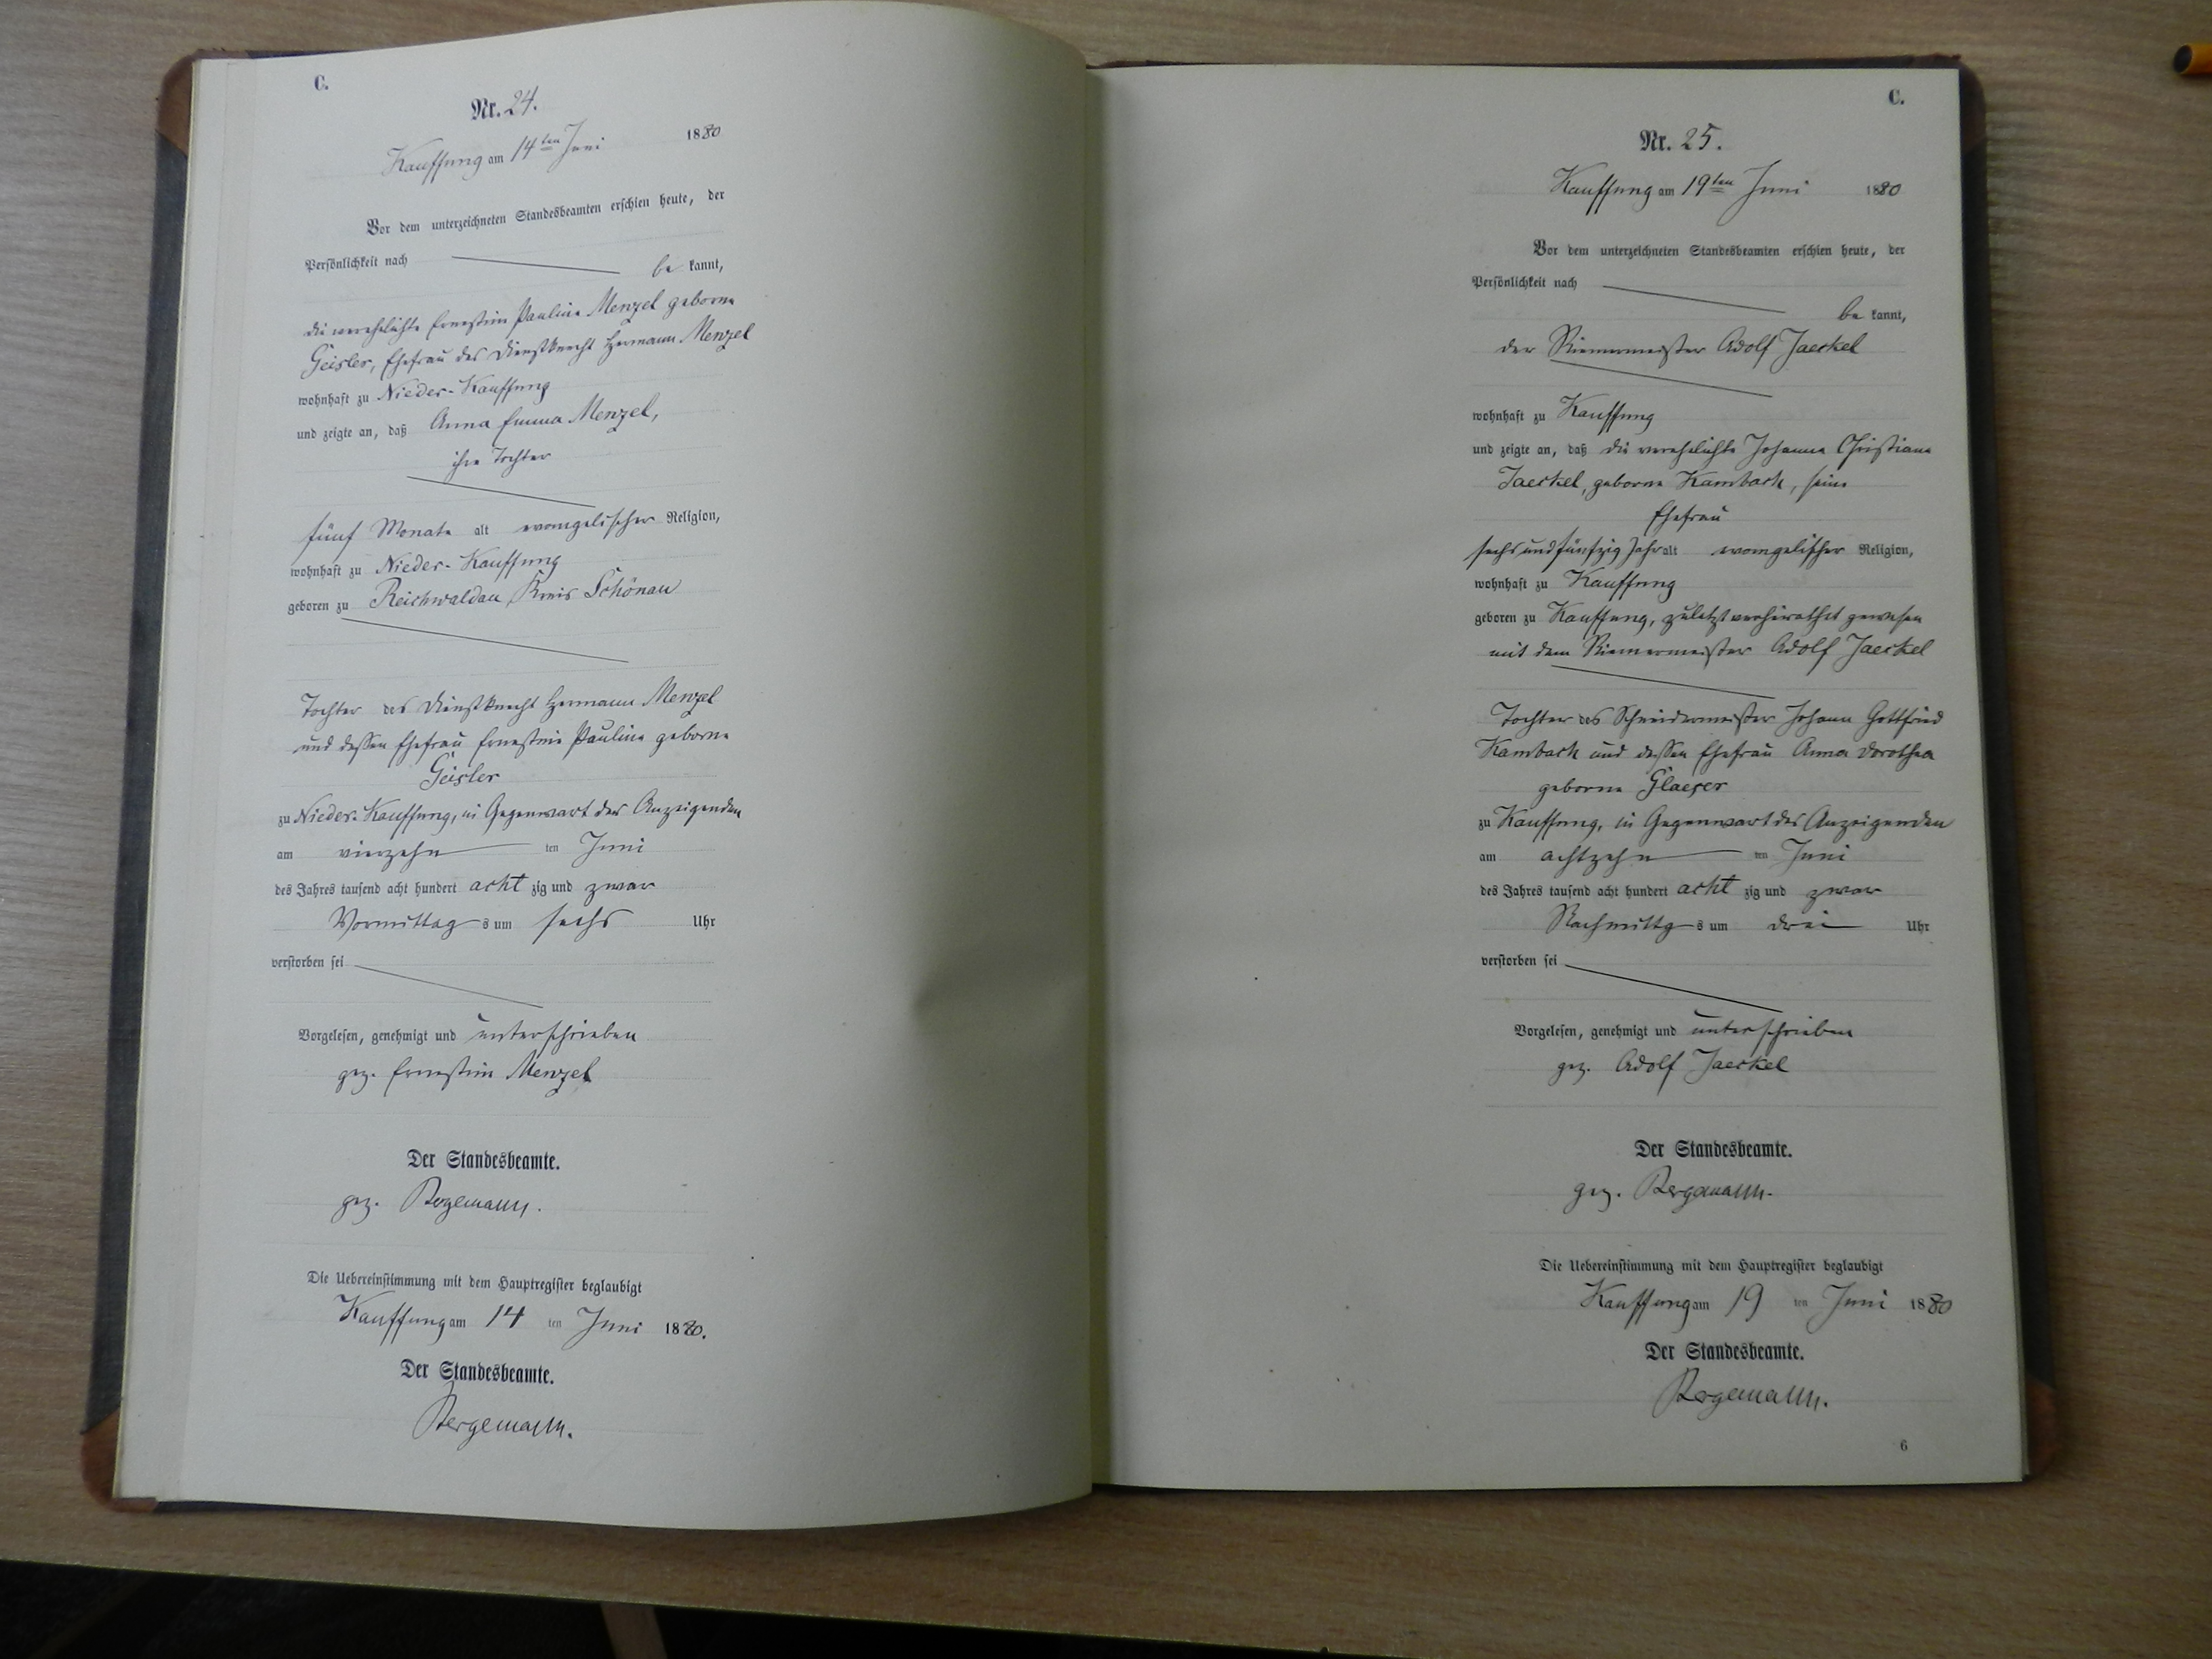 C.
Nr. 24.
Kauffung am 14ten Juni 1880
Vor dem unterzeichneten Standesbeamten erschien heute, der
Persönlichkeit nach be kannt,
die verehelichte Ernestine Pauline Menzel geborne
Geisler, Ehefrau des Dienstknecht Hermann Menzel
wohnhaft zu Nieder-Kauffung
und zeigte an, daß Anna Emma Menzel,
ihre Tochter
fünf Monate alt evangelischer Religion,
wohnhaft zu Nieder-Kauffung
geboren zu Reichwaldau, Kreis Schönau
Tochter des Dienstknecht Hermann Menzel
und dessen Ehefrau Ernestine Pauline geborne
Geisler
zu Nieder-Kauffung, in Gegenwart der Anzeigenden
am vierzehn ten Juni
des Jahres tausend acht hundert acht zig und zwar
Vormittag s um sechs Uhr
verstorben sei
Vorgelesen, genehmigt und unterschrieben
gez. Ernestine Menzel
Der Standesbeamte.
gez. Bergemann.
Die Uebereinstimmung mit dem Hauptregister beglaubigt
Kauffung am 14 ten Juni 1880.
Der Standesbeamte.
Bergemann.
C.
Nr. 25.
Kauffung am 19ten Juni 1880
Vor dem unterzeichneten Standesbeamten erschien heute, der
Persönlichkeit nach
be kannt,
der Riemermeister Adolf Jaeckel
wohnhaft zu Kauffung
und zeigte an, daß die verehelichte Johanne Christiane
Jaeckel, geborne Kambach, seine
Ehefrau
sechs und fünfzig Jahr alt evangelischer Religion,
wohnhaft zu Kauffung
geboren zu Kauffung, zuletzt verheirathet gewesen
mit dem Riemermeister Adolf Jaeckel
Tochter des Schneidermeister Johann Gottfried
Kambach und dessen Ehefrau Anna Dorothea
geborne Glaeser
zu Kauffung, in Gegenwart des Anzeigenden
am achtzehn ten Juni
des Jahres tausend acht hundert acht zig und zwar
Nachmittg s um drei Uhr
verstorben sei
Vorgelesen, genehmigt und unterschrieben
gez. Adolf Jaeckel
Der Standesbeamte.
gez. Bergemann.
Die Uebereinstimmung mit dem Hauptregister beglaubigt
Kauffung am 19 ten Juni 1880
Der Standesbeamte.
Bergemann.
6